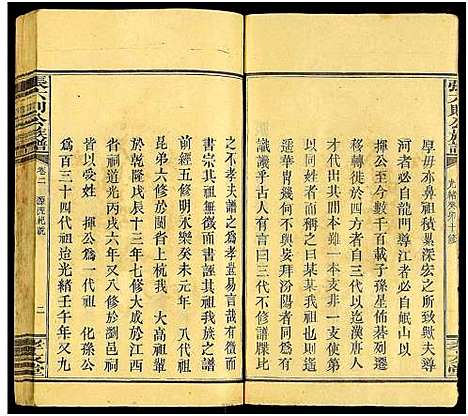 張六則公族譜
光緒癸卯十修
厚毋亦鼻祖積累深宏之所致夫導
河者必自龍門導江者必自岷山以
揮公至今數千百載子孫星佈碁列遷
移轉徙於四方者自三代以迄漢唐人
才代出其間本難一本支非一支使第
約略而言之曰某某我祖也某某我宗
遥宵幾何不與妄拜汾陽者同為有
識譏乎古人有言曰三代不修譜牒比
之不孝夫譜之為孝豈易言哉有徵而
書宗其祖無徵而書誣其祖我族之譜
前經五修明永樂癸未元年 八代祖
昆弟六修於閩省上杭我 太高祖輩
於乾隆戊辰十三年七修大成於江西
省祠道光丙戌六年又八修於瀏邑祠
皆以受姓 揮公為一代祖 化孫公
為百三十四代祖迨光緒壬午年又九
張六則公族譜
卷二 源流總說
二
孝友堂